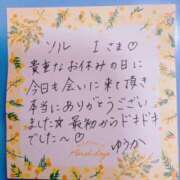 ソル Iさま♡
貴重なお休みの日に
今日も会いに来て頂き
本当にありがとうござい
ました☆最初からドキドキ
でした〜♡
ゆうか